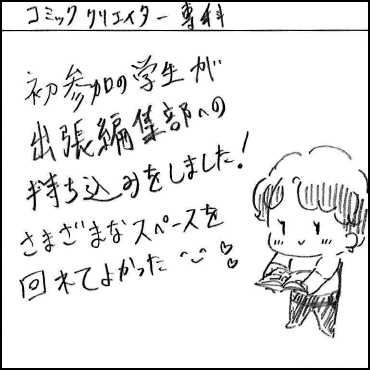 コミック クリエイター 専科
初参加の学生が
出張編集部への
持ち込みをしました！
さまざまなスペースを
回れてよかった